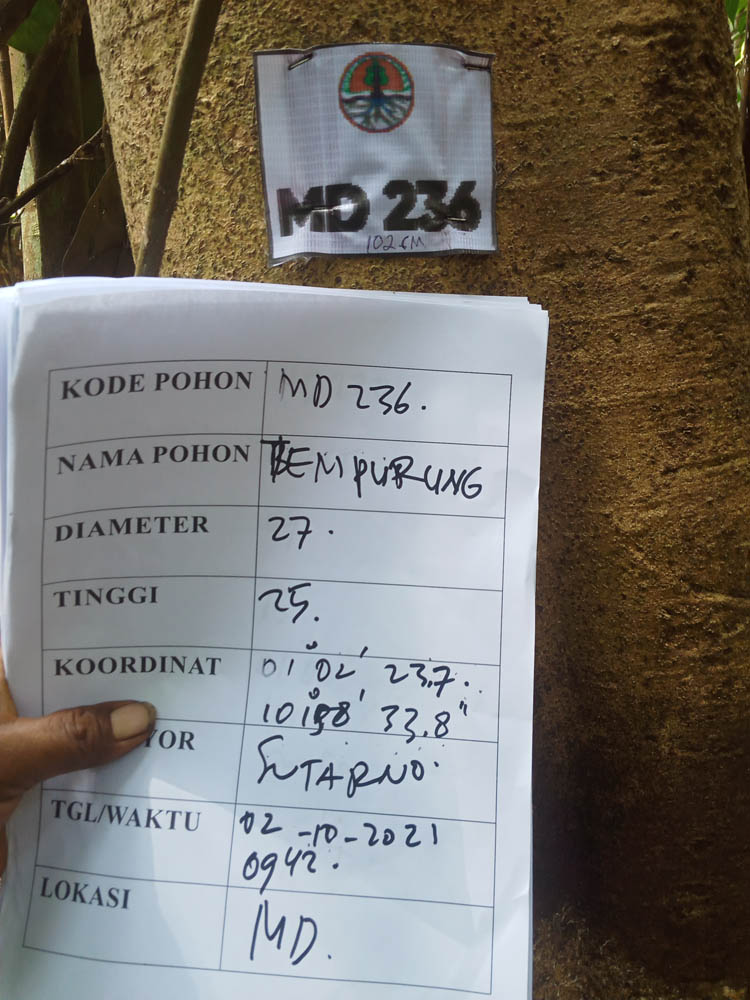 MD 236
102 CM
KODE POHON MD 236.
NAMA POHON TEMPURUNG
DIAMETER 27.
TINGGI 25.
KOORDINAT 01° 02' 23.7.
33.8"
YOR SUTARNO.
TGL/WAKTU 02-10-2021
0942.
LOKASI MD.